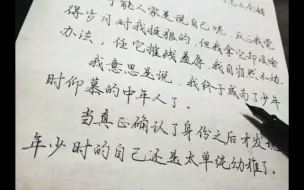 可能人家是说自己呢，反正我觉
得岁月对我挺狠的，但我拿它却没啥
办法，任它摧残羞辱，我自岿然不动。
我意思是说，我终于成为了少年
时仰慕的中年人了。
当真正确认了身份之后才发现
年少时的自己还是太单纯幼稚了。